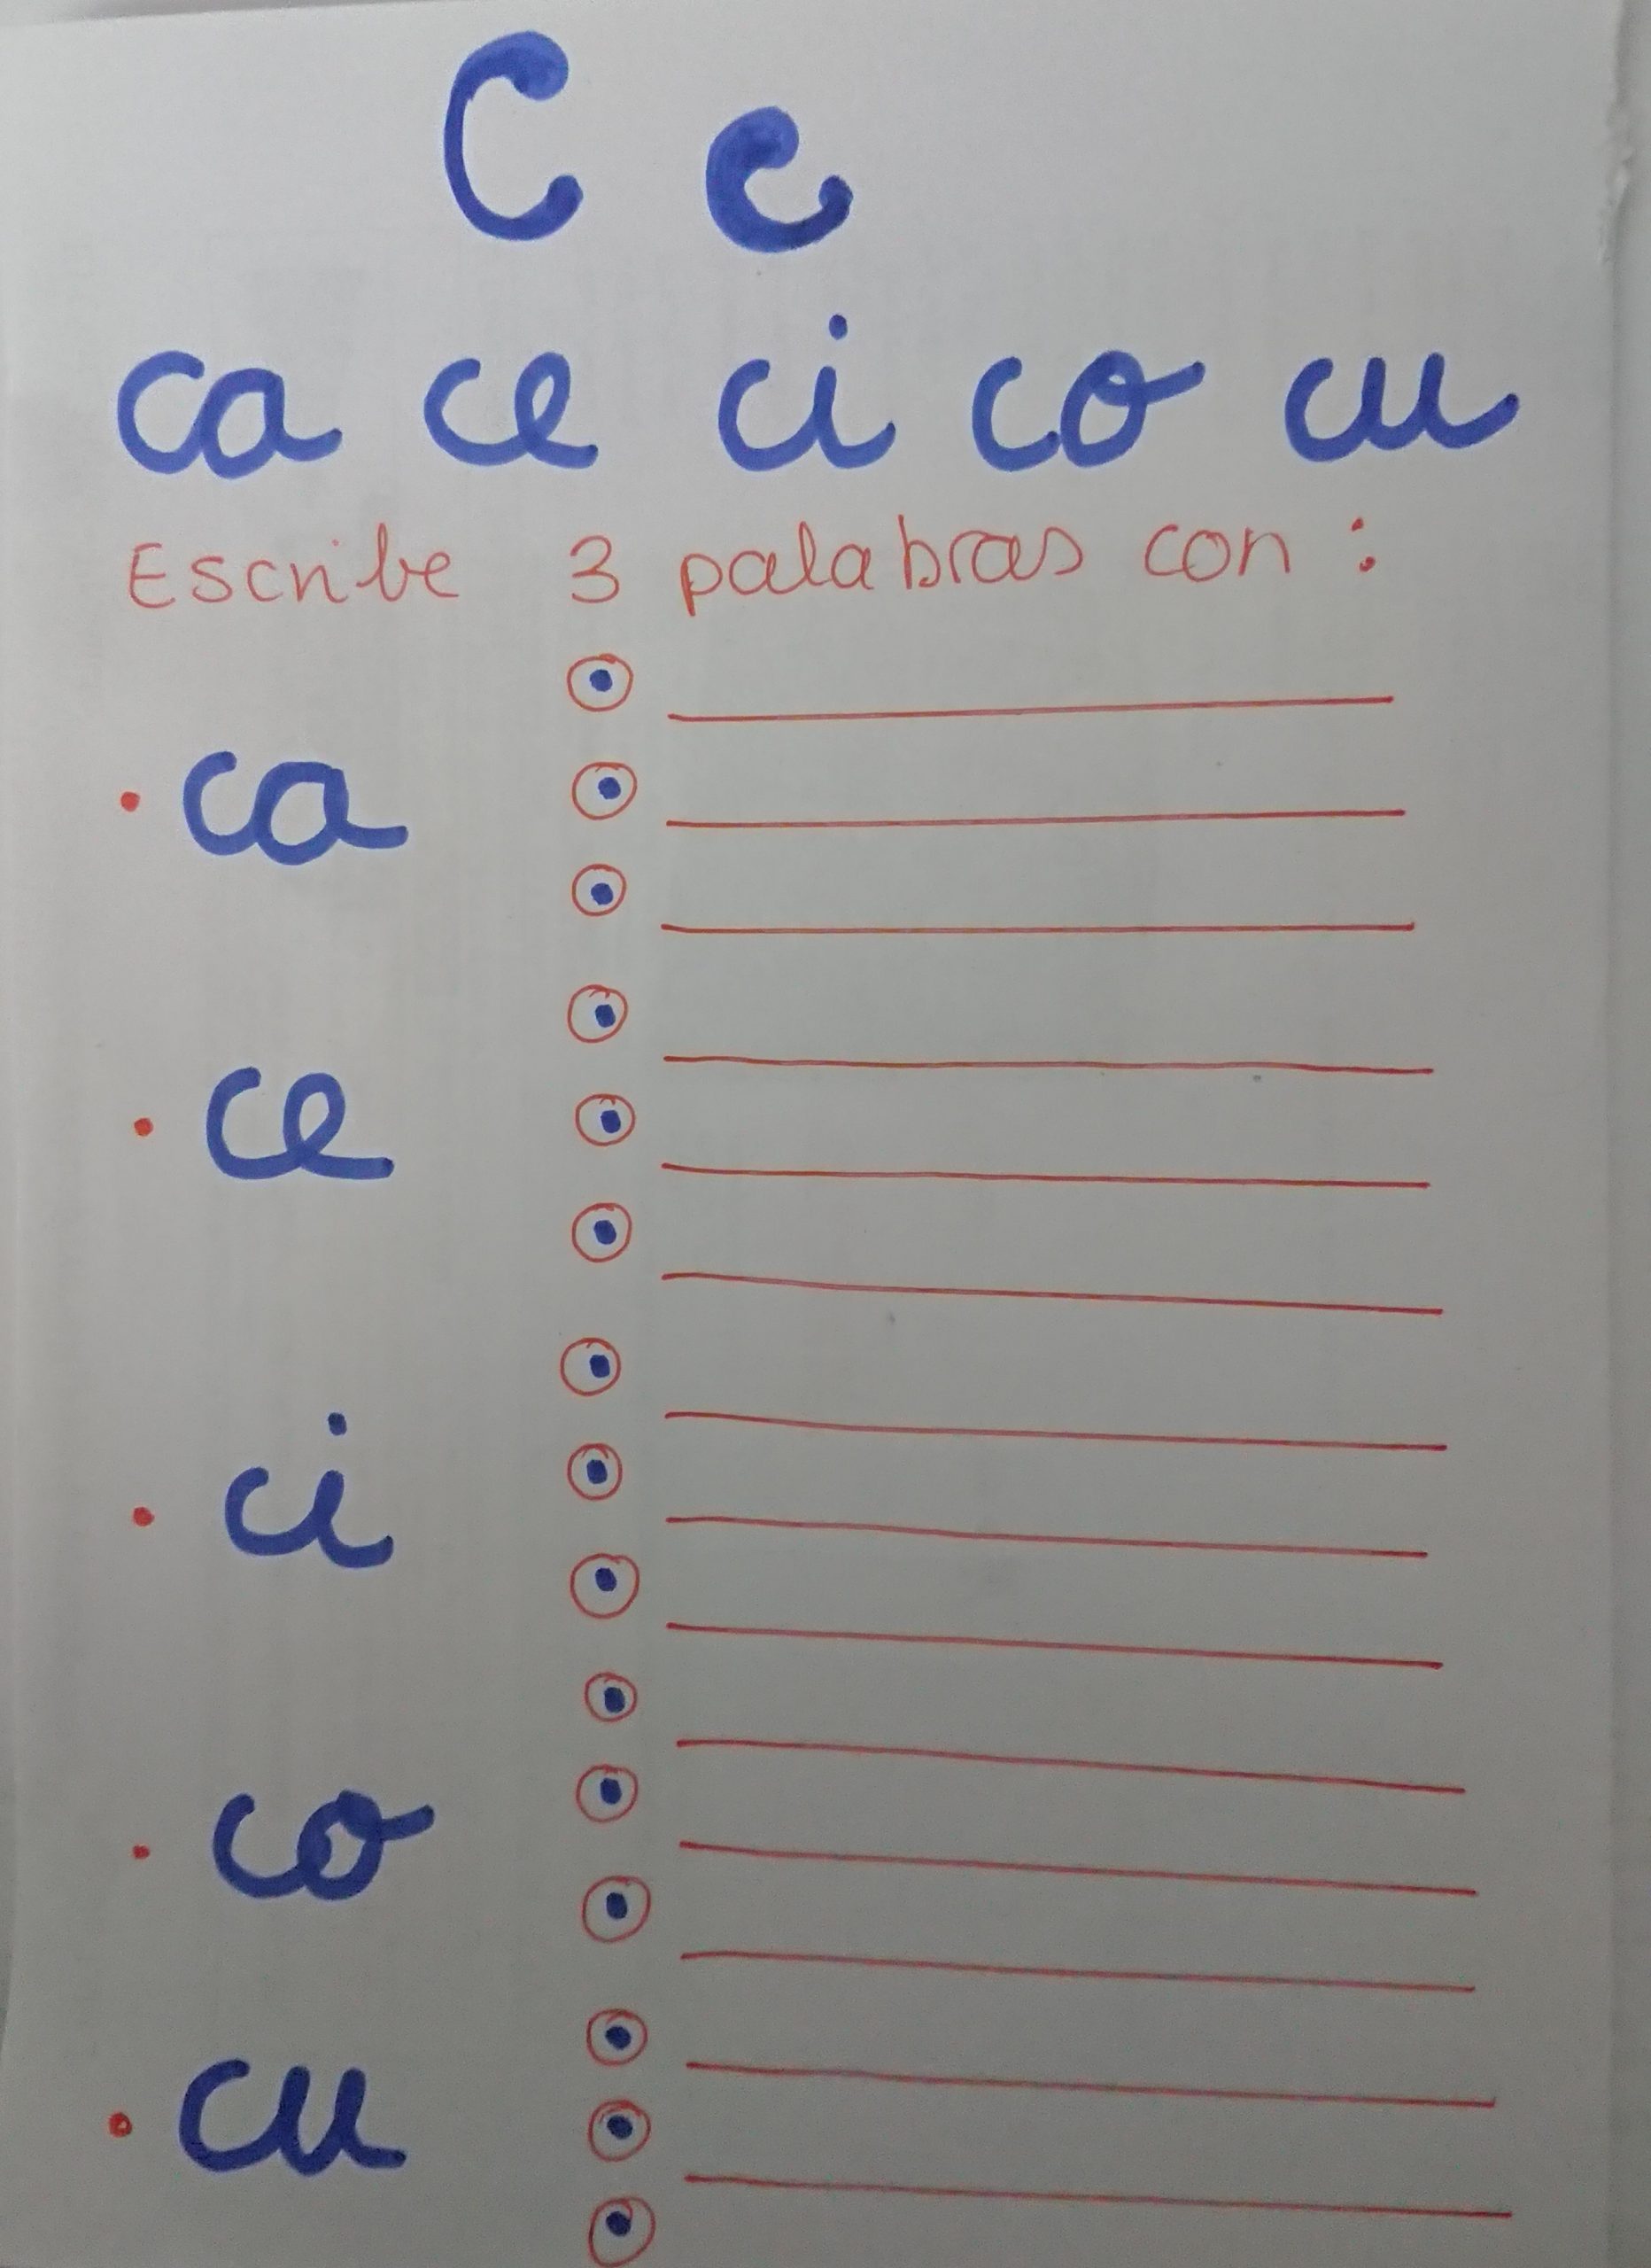 C c
ca ce ci co cu
Escribe 3 palabras con:
ca
ce
ci
co
cu